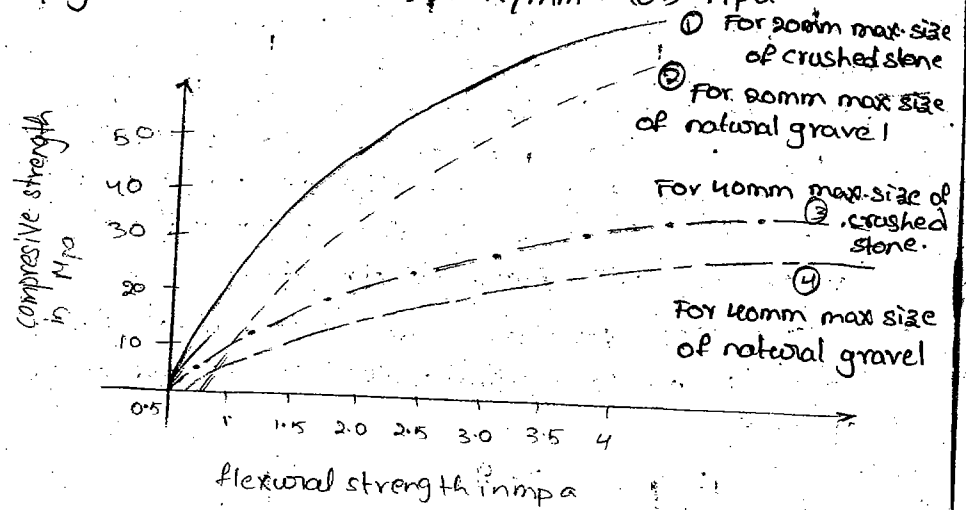 ① For 20mm max. size
of crushed stone
② For 20mm max size
of natural gravel
For 40mm max. size of
③ crushed
stone.
④
For 40mm max size
of natural gravel
compresive strength
in Mpa
50
40
30
20
10
0.5
1
1.5
2.0
2.5
3.0
3.5
4
flexural strength in mpa